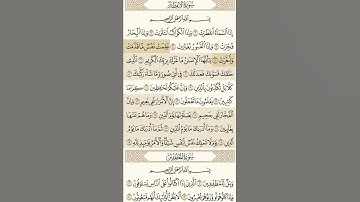 سُورَةُ الانفِطَارِ
بِسْمِ ٱللَّهِ ٱلرَّحْمَٰنِ ٱلرَّحِيمِ
إِذَا ٱلسَّمَآءُ ٱنفَطَرَتْ ١ وَإِذَا ٱلْكَوَاكِبُ ٱنتَثَرَتْ ٢ وَإِذَا ٱلْبِحَارُ
فُجِّرَتْ ٣ وَإِذَا ٱلْقُبُورُ بُعْثِرَتْ ٤ عَلِمَتْ نَفْسٌ مَّا قَدَّمَتْ
وَأَخَّرَتْ ٥ يَٰٓأَيُّهَا ٱلْإِنسَٰنُ مَا غَرَّكَ بِرَبِّكَ ٱلْكَرِيمِ ٦ ٱلَّذِى
خَلَقَكَ فَسَوَّىٰكَ فَعَدَلَكَ ٧ فِىٓ أَىِّ صُورَةٍ مَّا شَآءَ رَكَّبَكَ ٨
كَلَّا بَلْ تُكَذِّبُونَ بِٱلدِّينِ ٩ وَإِنَّ عَلَيْكُمْ لَحَٰفِظِينَ ١٠ كِرَامًا
كَٰتِبِينَ ١١ يَعْلَمُونَ مَا تَفْعَلُونَ ١٢ إِنَّ ٱلْأَبْرَارَ لَفِى نَعِيمٍ ١٣ وَإِنَّ
ٱلْفُجَّارَ لَفِى جَحِيمٍ ١٤ يَصْلَوْنَهَا يَوْمَ ٱلدِّينِ ١٥ وَمَا هُمْ عَنْهَا
بِغَآئِبِينَ ١٦ وَمَآ أَدْرَىٰكَ مَا يَوْمُ ٱلدِّينِ ١٧ ثُمَّ مَآ أَدْرَىٰكَ مَا يَوْمُ
ٱلدِّينِ ١٨ يَوْمَ لَا تَمْلِكُ نَفْسٌ لِّنَفْسٍ شَيْـًٔا وَٱلْأَمْرُ يَوْمَئِذٍ لِّلَّهِ ١٩
سُورَةُ المُطَفِّفِينَ
بِسْمِ ٱللَّهِ ٱلرَّحْمَٰنِ ٱلرَّحِيمِ
وَيْلٌ لِّلْمُطَفِّفِينَ ١ ٱلَّذِينَ إِذَا ٱكْتَالُوا۟ عَلَى ٱلنَّاسِ يَسْتَوْفُونَ ٢
وَإِذَا كَالُوهُمْ أَو وَّزَنُوهُمْ يُخْسِرُونَ ٣ أَلَا يَظُنُّ أُو۟لَٰٓئِكَ أَنَّهُم مَّبْعُوثُونَ ٤